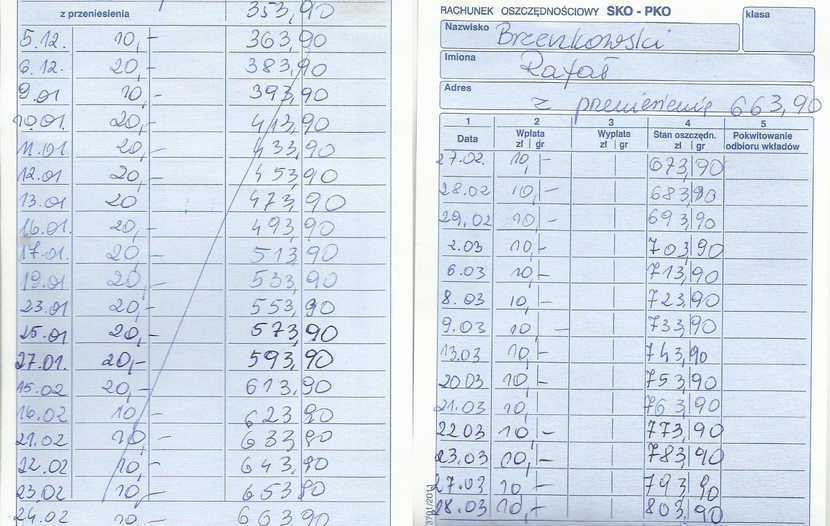 z przeniesienia 353,90
5.12. 10,- 363,90
6.12. 20,- 383,90
9.01 10,- 393,90
10.01. 20,- 413,90
11.01 20,- 433,90
12.01 20,- 453,90
13.01 20 473,90
16.01. 20,- 493,90
17.01. 20,- 513,90
19.01 20,- 533,90
23.01 20,- 553,90
25.01 20,- 573,90
27.01. 20,- 593,90
15.02 20,- 613,90
16.02 10,- 623,90
21.02 10,- 633,90
22.02 10,- 643,90
23.02 10,- 653,90
24.02 10,- 663,90
RACHUNEK OSZCZĘDNOŚCIOWY SKO - PKO
klasa
Nazwisko Brzenkowski
Imiona Rafał
Adres
z przeniesienia 663,90
1 2 3 4 5
Data Wpłata zł gr Wypłata zł gr Stan oszczędn. zł gr Pokwitowanie odbioru wkładów
27.02. 10,- 673,90
28.02 10,- 683,90
29.02 10,- 693,90
2.03 10,- 703,90
6.03 10,- 713,90
8.03 10,- 723,90
9.03 10,- 733,90
13.03 10,- 743,90
20.03 10,- 753,90
21.03 10, 763,90
22.03 10,- 773,90
23.03 10,- 783,90
27.03 10,- 793,90
28.03 10,- 803,90